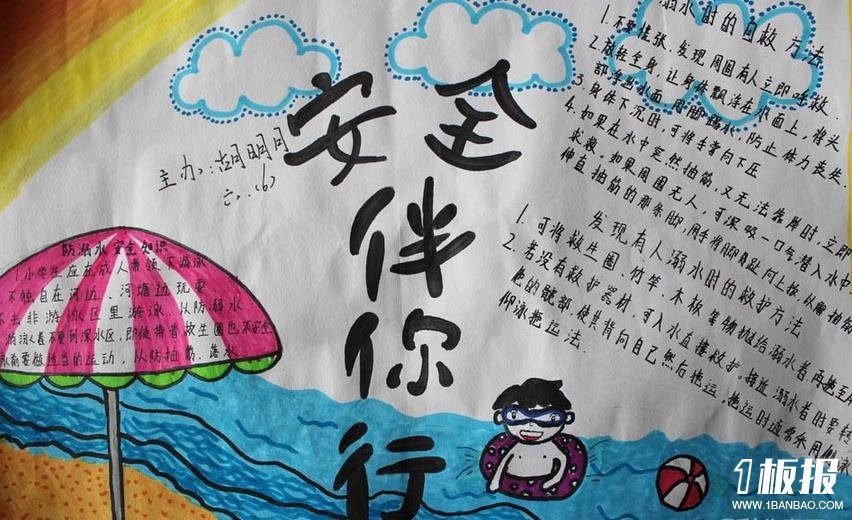 安全
伴
你
行
主办:胡明月
六.(6)
防溺水安全知识
1.小学生应在成人带领下游泳
不独自在河边、河塘边玩耍
不去非游泳区里游泳,以防溺水
游泳区,即使带着救生圈也不安全
要做适当的运动,以防抽筋、落水
溺水时的自救方法
1.不要慌张,发现周围有人立即呼救.
2.放轻全身,让身体飘浮在水面上,将头
部浮出水面,用脚踢水,防止体力丧失.
3.身体下沉时,可将手掌向下压
4.如果在水中突然抽筋,又无法靠岸时,立即
求救.如果周围无人,可深吸一口气潜入水中
伸直抽筋的那条脚,用手将脚趾向上扳,以解抽筋
发现有人溺水时的救护方法
1.可将救生圈、竹竿、木板等物抛给溺水者,再拖至
2.若没有救护器材,可入水直接救护,接近溺水者时要转
他的髋部,使其背向自己然后拖运,拖运时通常采用
仰泳拖运法.
1板报
WWW.1BANBAO.COM